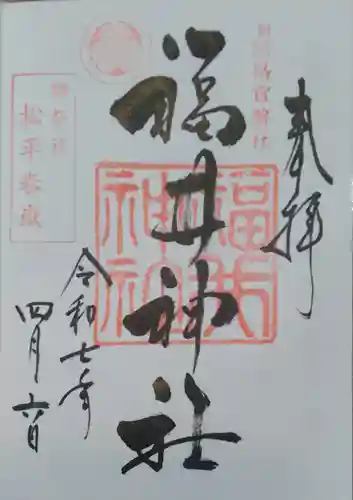 奉拝
福井神社
福井
神社
松平春嶽
令和七年
四月六日